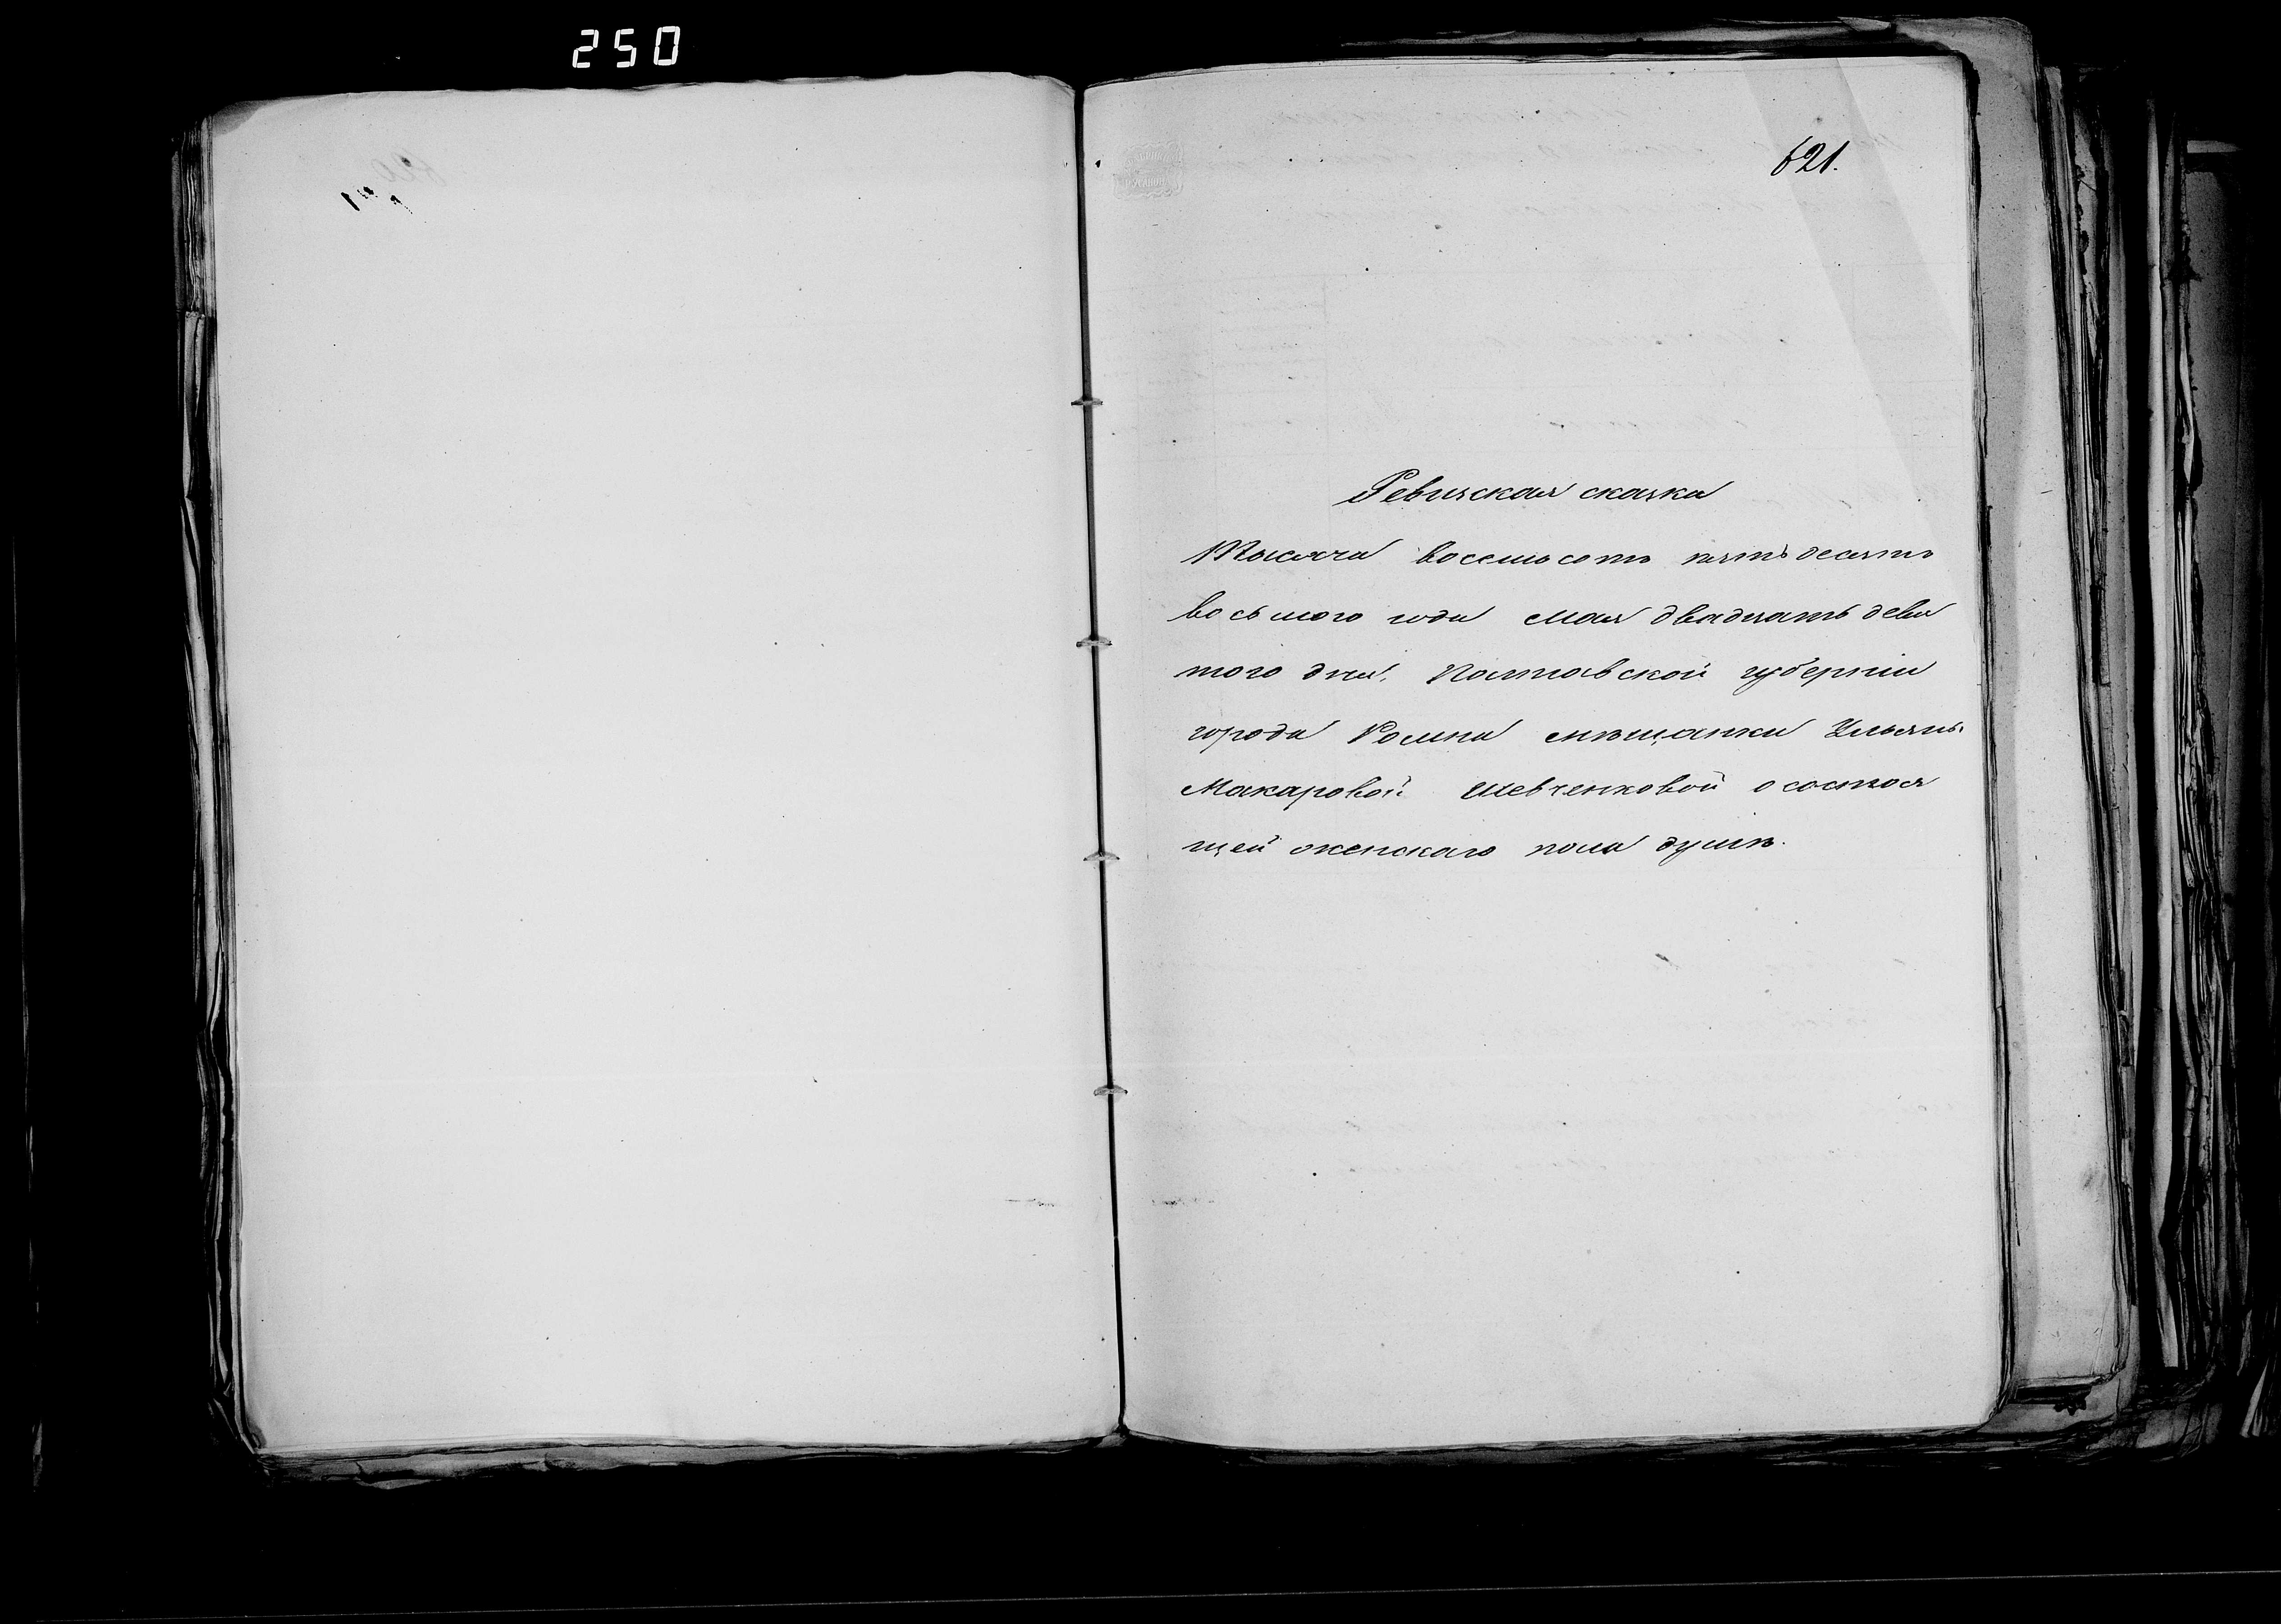 250
621.
Ревизская сказка
Тысяча восемьсотъ пятьдесятъ
восьмого года мая двадцать девя
того дня, Полтавской губерніи
города Ромна мѣщанки Ульяны
Макаровой Шевченковой о состоя
щей женскаго пола душѣ.